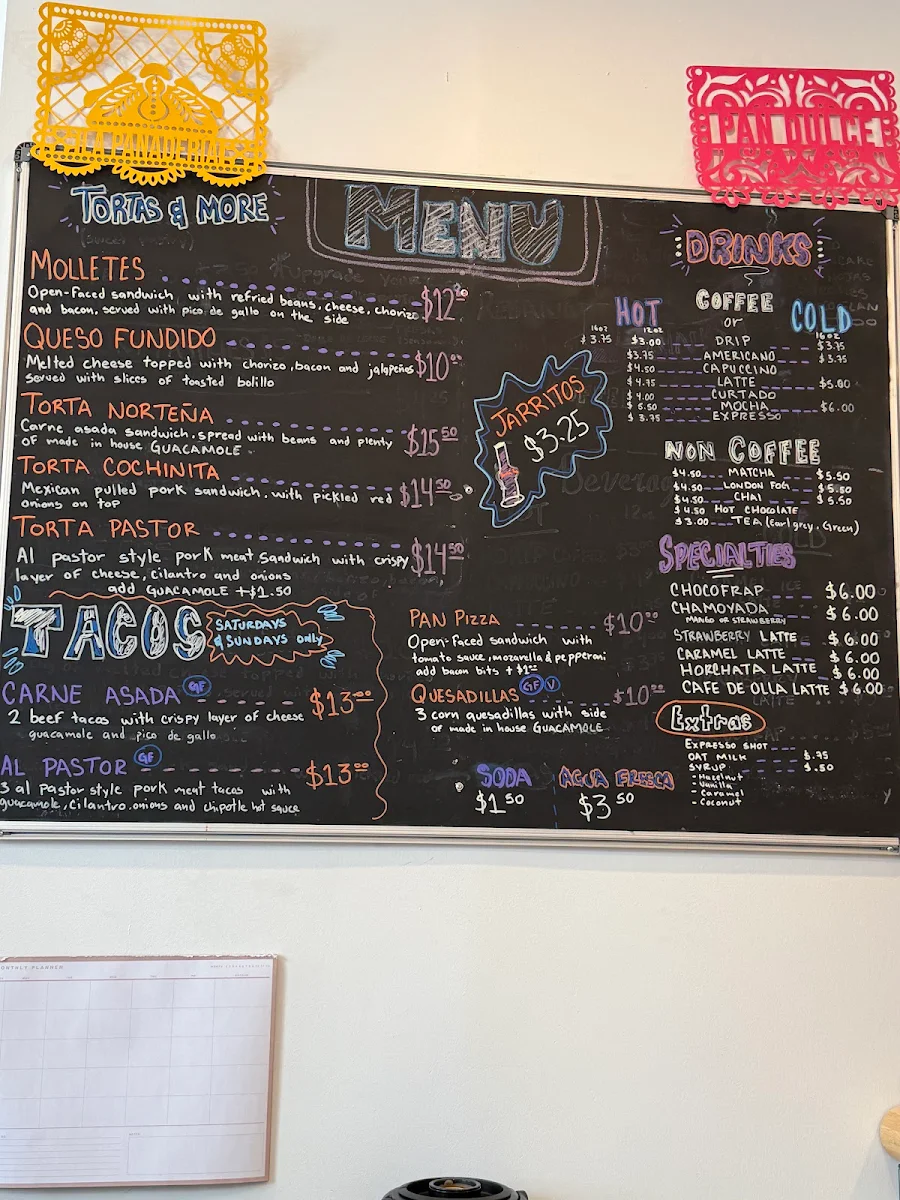 LA PANADERIA
PAN DULCE
MENU
TORTAS & MORE
MOLLETES $12
Open-faced sandwich with refried beans, cheese, chorizo
and bacon, served with pico de gallo on the side
QUESO FUNDIDO $10
Melted cheese topped with chorizo, bacon and jalapeños
served with slices of toasted bolillo
TORTA NORTEÑA $15.50
Carne asada sandwich, spread with beans and plenty
of made in house GUACAMOLE
TORTA COCHINITA $14.50
Mexican pulled pork sandwich, with pickled red
onions on top
TORTA PASTOR $14.50
Al pastor style pork meat sandwich with crispy
layer of cheese, cilantro and onions
add GUACAMOLE ++$1.50
TACOS
SATURDAYS
& SUNDAYS only
CARNE ASADA GF $13.00
2 beef tacos with crispy layer of cheese
guacamole and pico de gallo
AL PASTOR GF $13.00
3 al pastor style pork meat tacos with
guacamole, cilantro, onions and chipotle hot sauce
JARRITOS
$3.25
PAN PIZZA $10.00
Open-faced sandwich with
tomato sauce, mozarella & pepperoni
add bacon bits +$1.00
QUESADILLAS GF V $10.00
3 corn quesadillas with side
of made in house GUACAMOLE
SODA
$1.50
AGUA FRESCA
$3.50
DRINKS
HOT COFFEE or COLD
16oz 12oz 16oz
$3.75 $3.00 DRIP $3.75
$3.75 AMERICANO $3.75
$4.50 CAPUCCINO
$4.75 LATTE $5.00
$4.00 CURTADO
$5.50 MOCHA $6.00
$3.75 EXPRESSO
NON COFFEE
$4.50 MATCHA $5.50
$4.50 LONDON FOG $5.50
$4.50 CHAI $5.50
$4.50 HOT CHOCOLATE
$3.00 TEA (Earl grey, Green)
SPECIALTIES
CHOCOFRAP $6.00
CHAMOYADA $6.00
MANGO OR STRAWBERRY
STRAWBERRY LATTE $6.00
CARAMEL LATTE $6.00
HORCHATA LATTE $6.00
CAFE DE OLLA LATTE $6.00
Extras
EXPRESSO SHOT
OAT MILK $.75
SYRUP $.50
- Hazelnut
- Vanilla
- Caramel
- Coconut
MONTHLY PLANNER